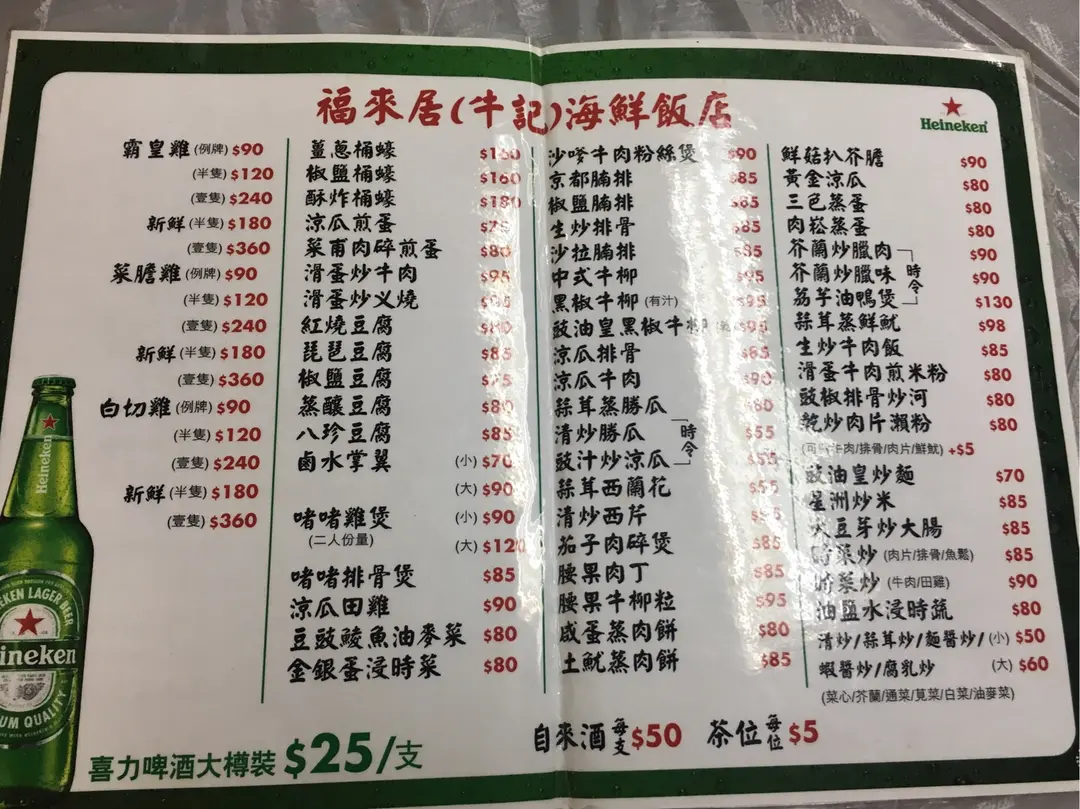 福來居(牛記)海鮮飯店
Heineken
霸皇雞(例牌)$90
(半隻)$120
(壹隻)$240
新鮮(半隻)$180
(壹隻)$360
菜膽雞(例牌)$90
(半隻)$120
(壹隻)$240
新鮮(半隻)$180
(壹隻)$360
白切雞(例牌)$90
(半隻)$120
(壹隻)$240
新鮮(半隻)$180
(壹隻)$360
薑蔥桶蠔 $160
椒鹽桶蠔 $160
酥炸桶蠔 $180
涼瓜煎蛋
菜甫肉碎煎蛋 $80
滑蛋炒牛肉 $95
滑蛋炒义燒
紅燒豆腐 $80
琵琶豆腐 $85
椒鹽豆腐 $75
蒸釀豆腐 $80
八珍豆腐 $85
鹵水掌翼 (小)$70
(大)$90
啫啫雞煲 (小)$90
(二人份量) (大)$120
啫啫排骨煲 $85
涼瓜田雞 $90
豆豉鯪魚油麥菜 $80
金銀蛋浸時菜 $80
沙嗲牛肉粉絲煲 $90
京都腩排 $85
椒鹽腩排 $85
生炒排骨 $85
沙拉腩排 $85
中式牛柳 $95
黑椒牛柳(有汁) $95
豉油皇黑椒牛柳 $95
涼瓜排骨 $85
涼瓜牛肉 $90
蒜茸蒸勝瓜 $80
清炒勝瓜 $55
豉汁炒涼瓜 $55
時令
蒜茸西蘭花 $55
清炒西芹
茄子肉碎煲 $85
腰果肉丁 $85
腰果牛柳粒 $95
咸蛋蒸肉餅 $80
土魷蒸肉餅 $85
鮮菇扒芥膽 $90
黃金涼瓜 $80
三色蒸蛋 $80
肉崧蒸蛋 $80
芥蘭炒臘肉 $90
芥蘭炒臘味 $90
荔芋油鴨煲 $130
時令
蒜茸蒸鮮魷 $98
生炒牛肉飯 $85
滑蛋牛肉煎米粉 $80
豉椒排骨炒河 $80
乾炒肉片瀨粉 $80
牛肉/排骨/肉片/鮮魷) +$5
豉油皇炒麵 $70
星洲炒米 $85
大豆芽炒大腸 $85
時菜炒(肉片/排骨/魚鬆) $85
時菜炒(牛肉/田雞) $90
油鹽水浸時蔬 $80
清炒/蒜茸炒/麵醬炒/(小)$50
蝦醬炒/腐乳炒 (大)$60
(菜心/芥蘭/通菜/莧菜/白菜/油麥菜)
自來酒每支$50 茶位每位$5
喜力啤酒大樽裝 $25/支
Heineken
LAGER BEER
QUALITY